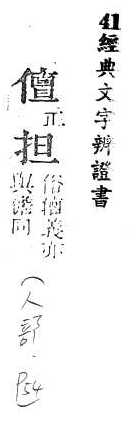 41經典文字辨證書
儃正
担俗擔義亦
與儋同
（人部．P54）